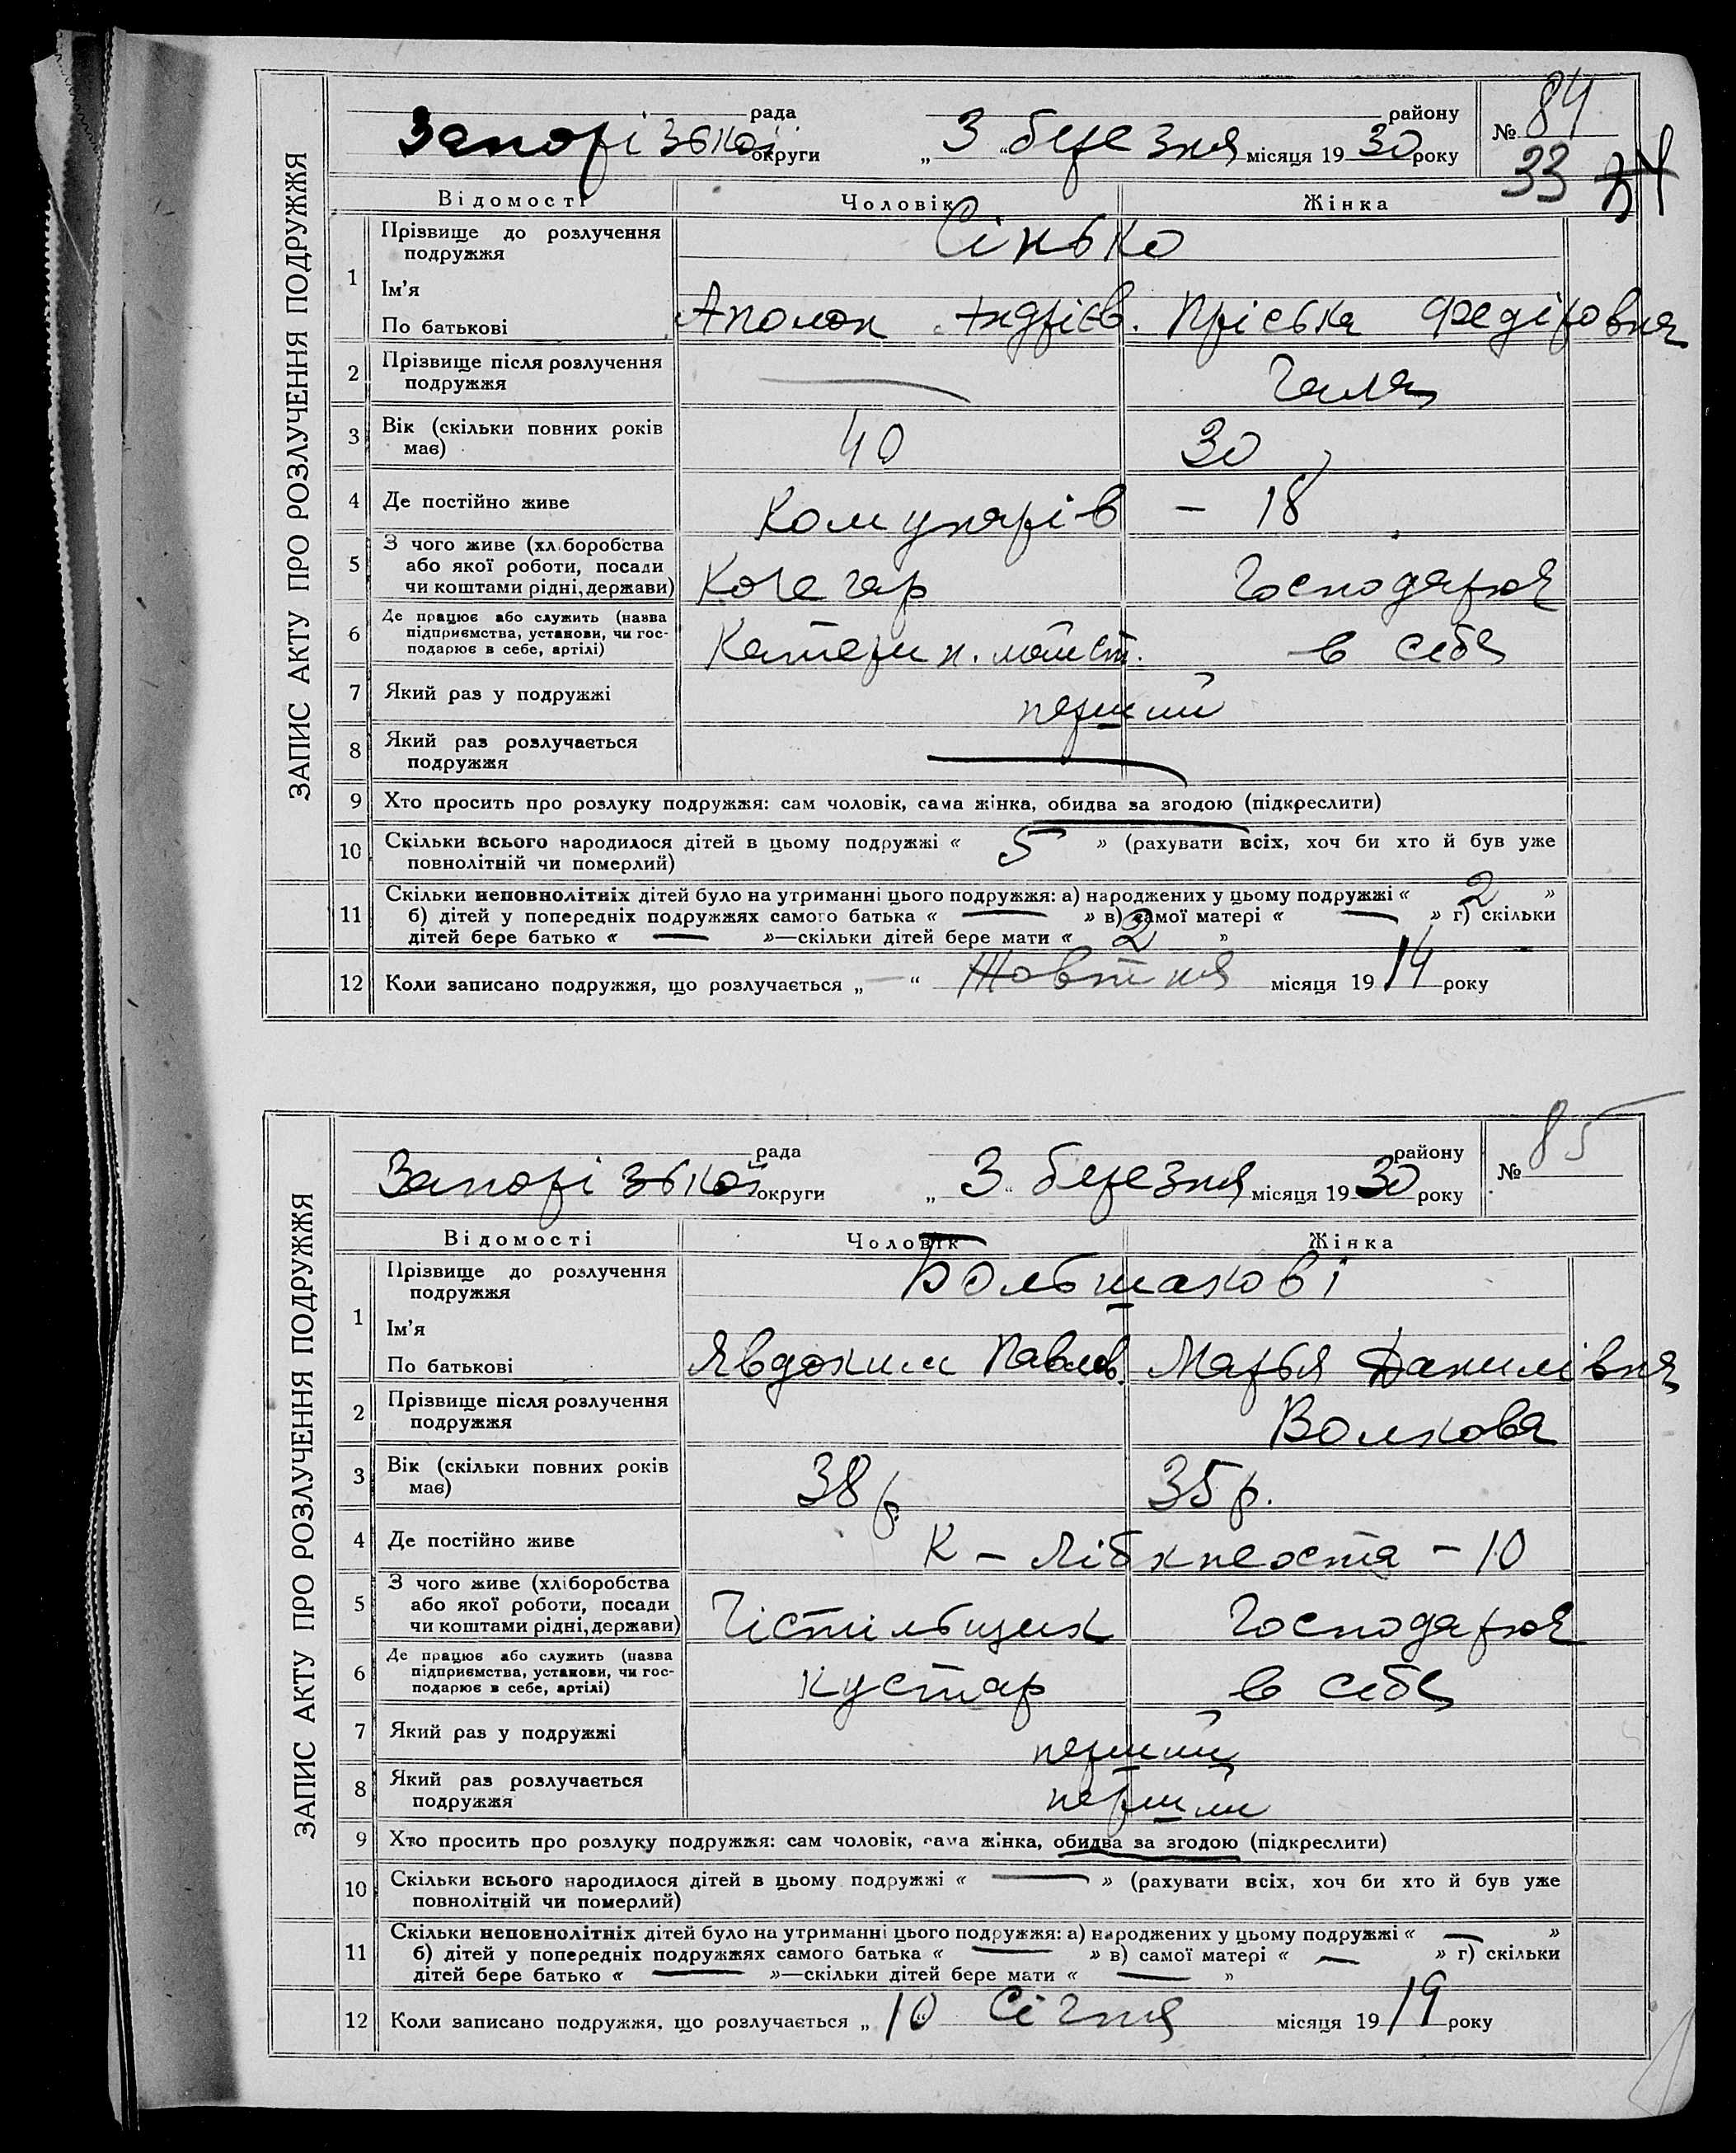 ЗАПИС АКТУ ПРО РОЗЛУЧЕННЯ ПОДРУЖЖЯ
рада району № 84
Запорізької округи „ 3 “ березня місяця 1930 року
33
Відомості Чоловік Жінка
1 Прізвище до розлучення подружжя Сінько
Ім’я
По батькові Аполон Андрієв. Пріська Федіровна
2 Прізвище після розлучення подружжя — Гала
3 Вік (скільки повних років має) 40 30
4 Де постійно живе Комунарів – 18
5 З чого живе (хліборобства або якої роботи, посади чи коштами рідні, держави) Кочегар Господарює
6 Де працює або служить (назва підприємства, установи, чи господарює в себе, артілі) Катерин. майст. в себе
7 Який раз у подружжі перший
8 Який раз розлучається подружжя —
9 Хто просить про розлуку подружжя: сам чоловік, сама жінка, обидва за згодою (підкреслити)
10 Скільки всього народилося дітей в цьому подружжі « 5 » (рахувати всіх, хоч би хто й був уже
повнолітній чи померлий)
11 Скільки неповнолітніх дітей було на утриманні цього подружжя: а) народжених у цьому подружжі « 2 »
б) дітей у попередніх подружжях самого батька « — » в) самої матері « — » г) скільки
дітей бере батько « — »—скільки дітей бере мати « 2 »
12 Коли записано подружжя, що розлучається „ — “ Жовтня місяця 1914 року
ЗАПИС АКТУ ПРО РОЗЛУЧЕННЯ ПОДРУЖЖЯ
рада району № 85
Запорізької округи „ 3 “ березня місяця 1930 року
Відомості Чоловік Жінка
1 Прізвище до розлучення подружжя Большакові
Ім’я
По батькові Явдоким Павлов. Марья Данилівна
2 Прізвище після розлучення подружжя Волкова
3 Вік (скільки повних років має) 38 р. 35 р.
4 Де постійно живе К – Лібкнехта – 10
5 З чого живе (хліборобства або якої роботи, посади чи коштами рідні, держави) Чістильщик Господарює
6 Де працює або служить (назва підприємства, установи, чи господарює в себе, артілі) кустар в себе
7 Який раз у подружжі перший
8 Який раз розлучається подружжя перший
9 Хто просить про розлуку подружжя: сам чоловік, сама жінка, обидва за згодою (підкреслити)
10 Скільки всього народилося дітей в цьому подружжі « — » (рахувати всіх, хоч би хто й був уже
повнолітній чи померлий)
11 Скільки неповнолітніх дітей було на утриманні цього подружжя: а) народжених у цьому подружжі « — »
б) дітей у попередніх подружжях самого батька « — » в) самої матері « — » г) скільки
дітей бере батько « — »—скільки дітей бере мати « — »
12 Коли записано подружжя, що розлучається „ 10 “ Січня місяця 1919 року